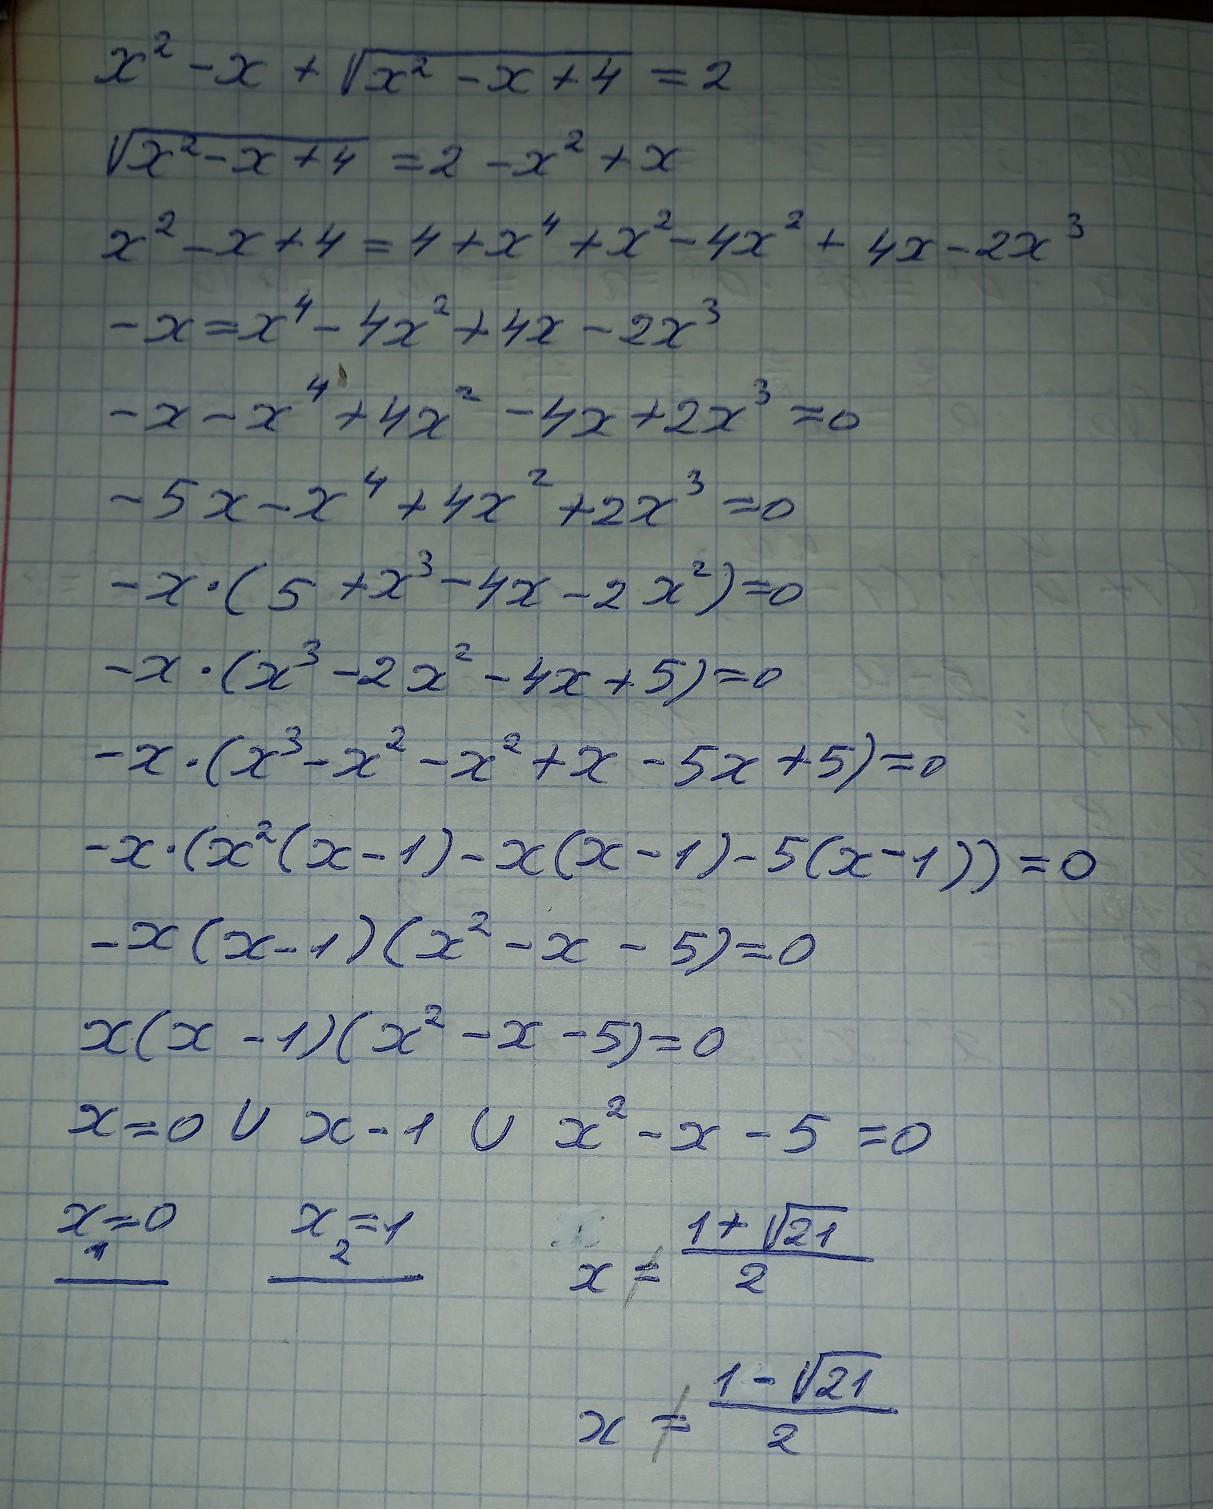 x² - x + √(x² - x + 4) = 2
√(x² - x + 4) = 2 - x² + x
x² - x + 4 = 4 + x⁴ + x² - 4x² + 4x - 2x³
-x = x⁴ - 4x² + 4x - 2x³
-x - x⁴ + 4x² - 4x + 2x³ = 0
-5x - x⁴ + 4x² + 2x³ = 0
-x · (5 + x³ - 4x - 2x²) = 0
-x · (x³ - 2x² - 4x + 5) = 0
-x · (x³ - x² - x² + x - 5x + 5) = 0
-x · (x²(x - 1) - x(x - 1) - 5(x - 1)) = 0
-x(x - 1)(x² - x - 5) = 0
x(x - 1)(x² - x - 5) = 0
x = 0 ∪ x - 1 ∪ x² - x - 5 = 0
x₁ = 0 x₂ = 1 x ≠ (1 + √21)/2
x ≠ (1 - √21)/2